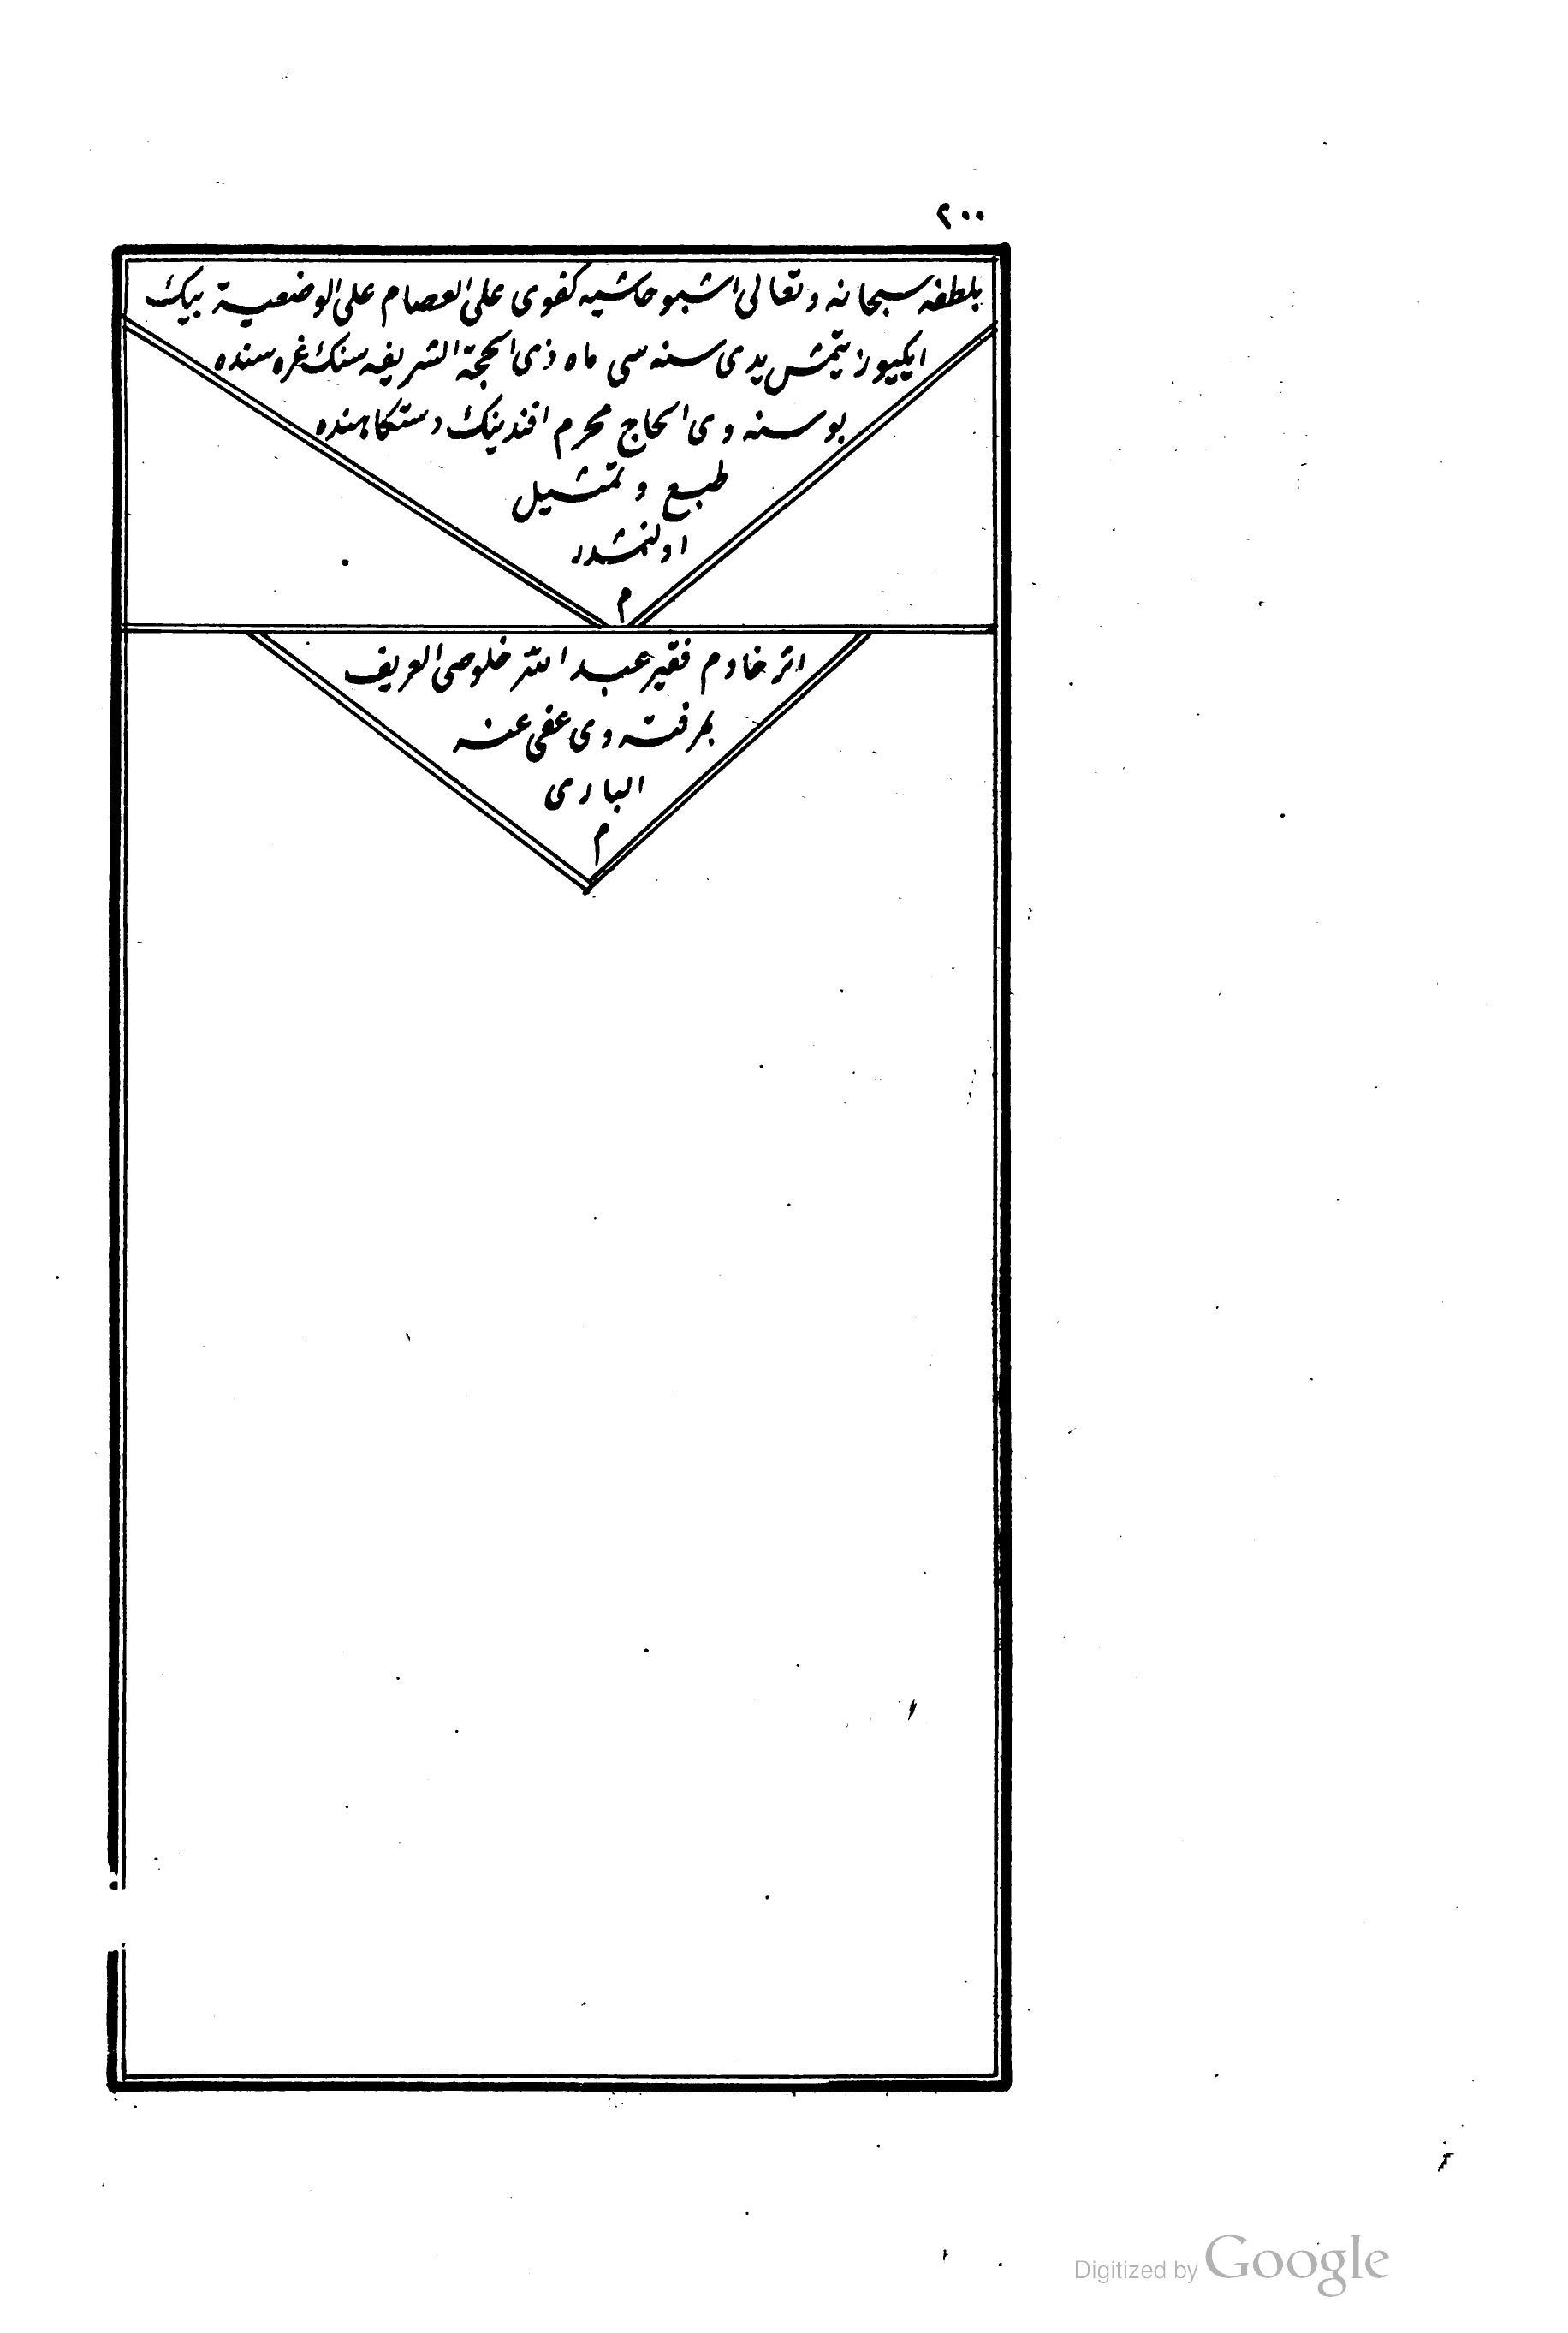 ٢٠٠
بلطفه سبحانه وتعالى اشبو حاشيه كفوى على العصام على الوضعية بيك
ايكيوز يتمش يدى سنه سى ماه ذى الحجة الشريفه سنك غره سنده
بوسنه وى الحاج محرم افندينك دستكاهنده
طبع و تمثيل
اولنمشدر
م
اثر خادم فقير عبد الله خلوصى العريف
وى عفى عنه
البارى
م
Digitized by Google